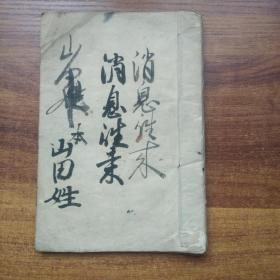 消息往来
消息往来
本
山田姓